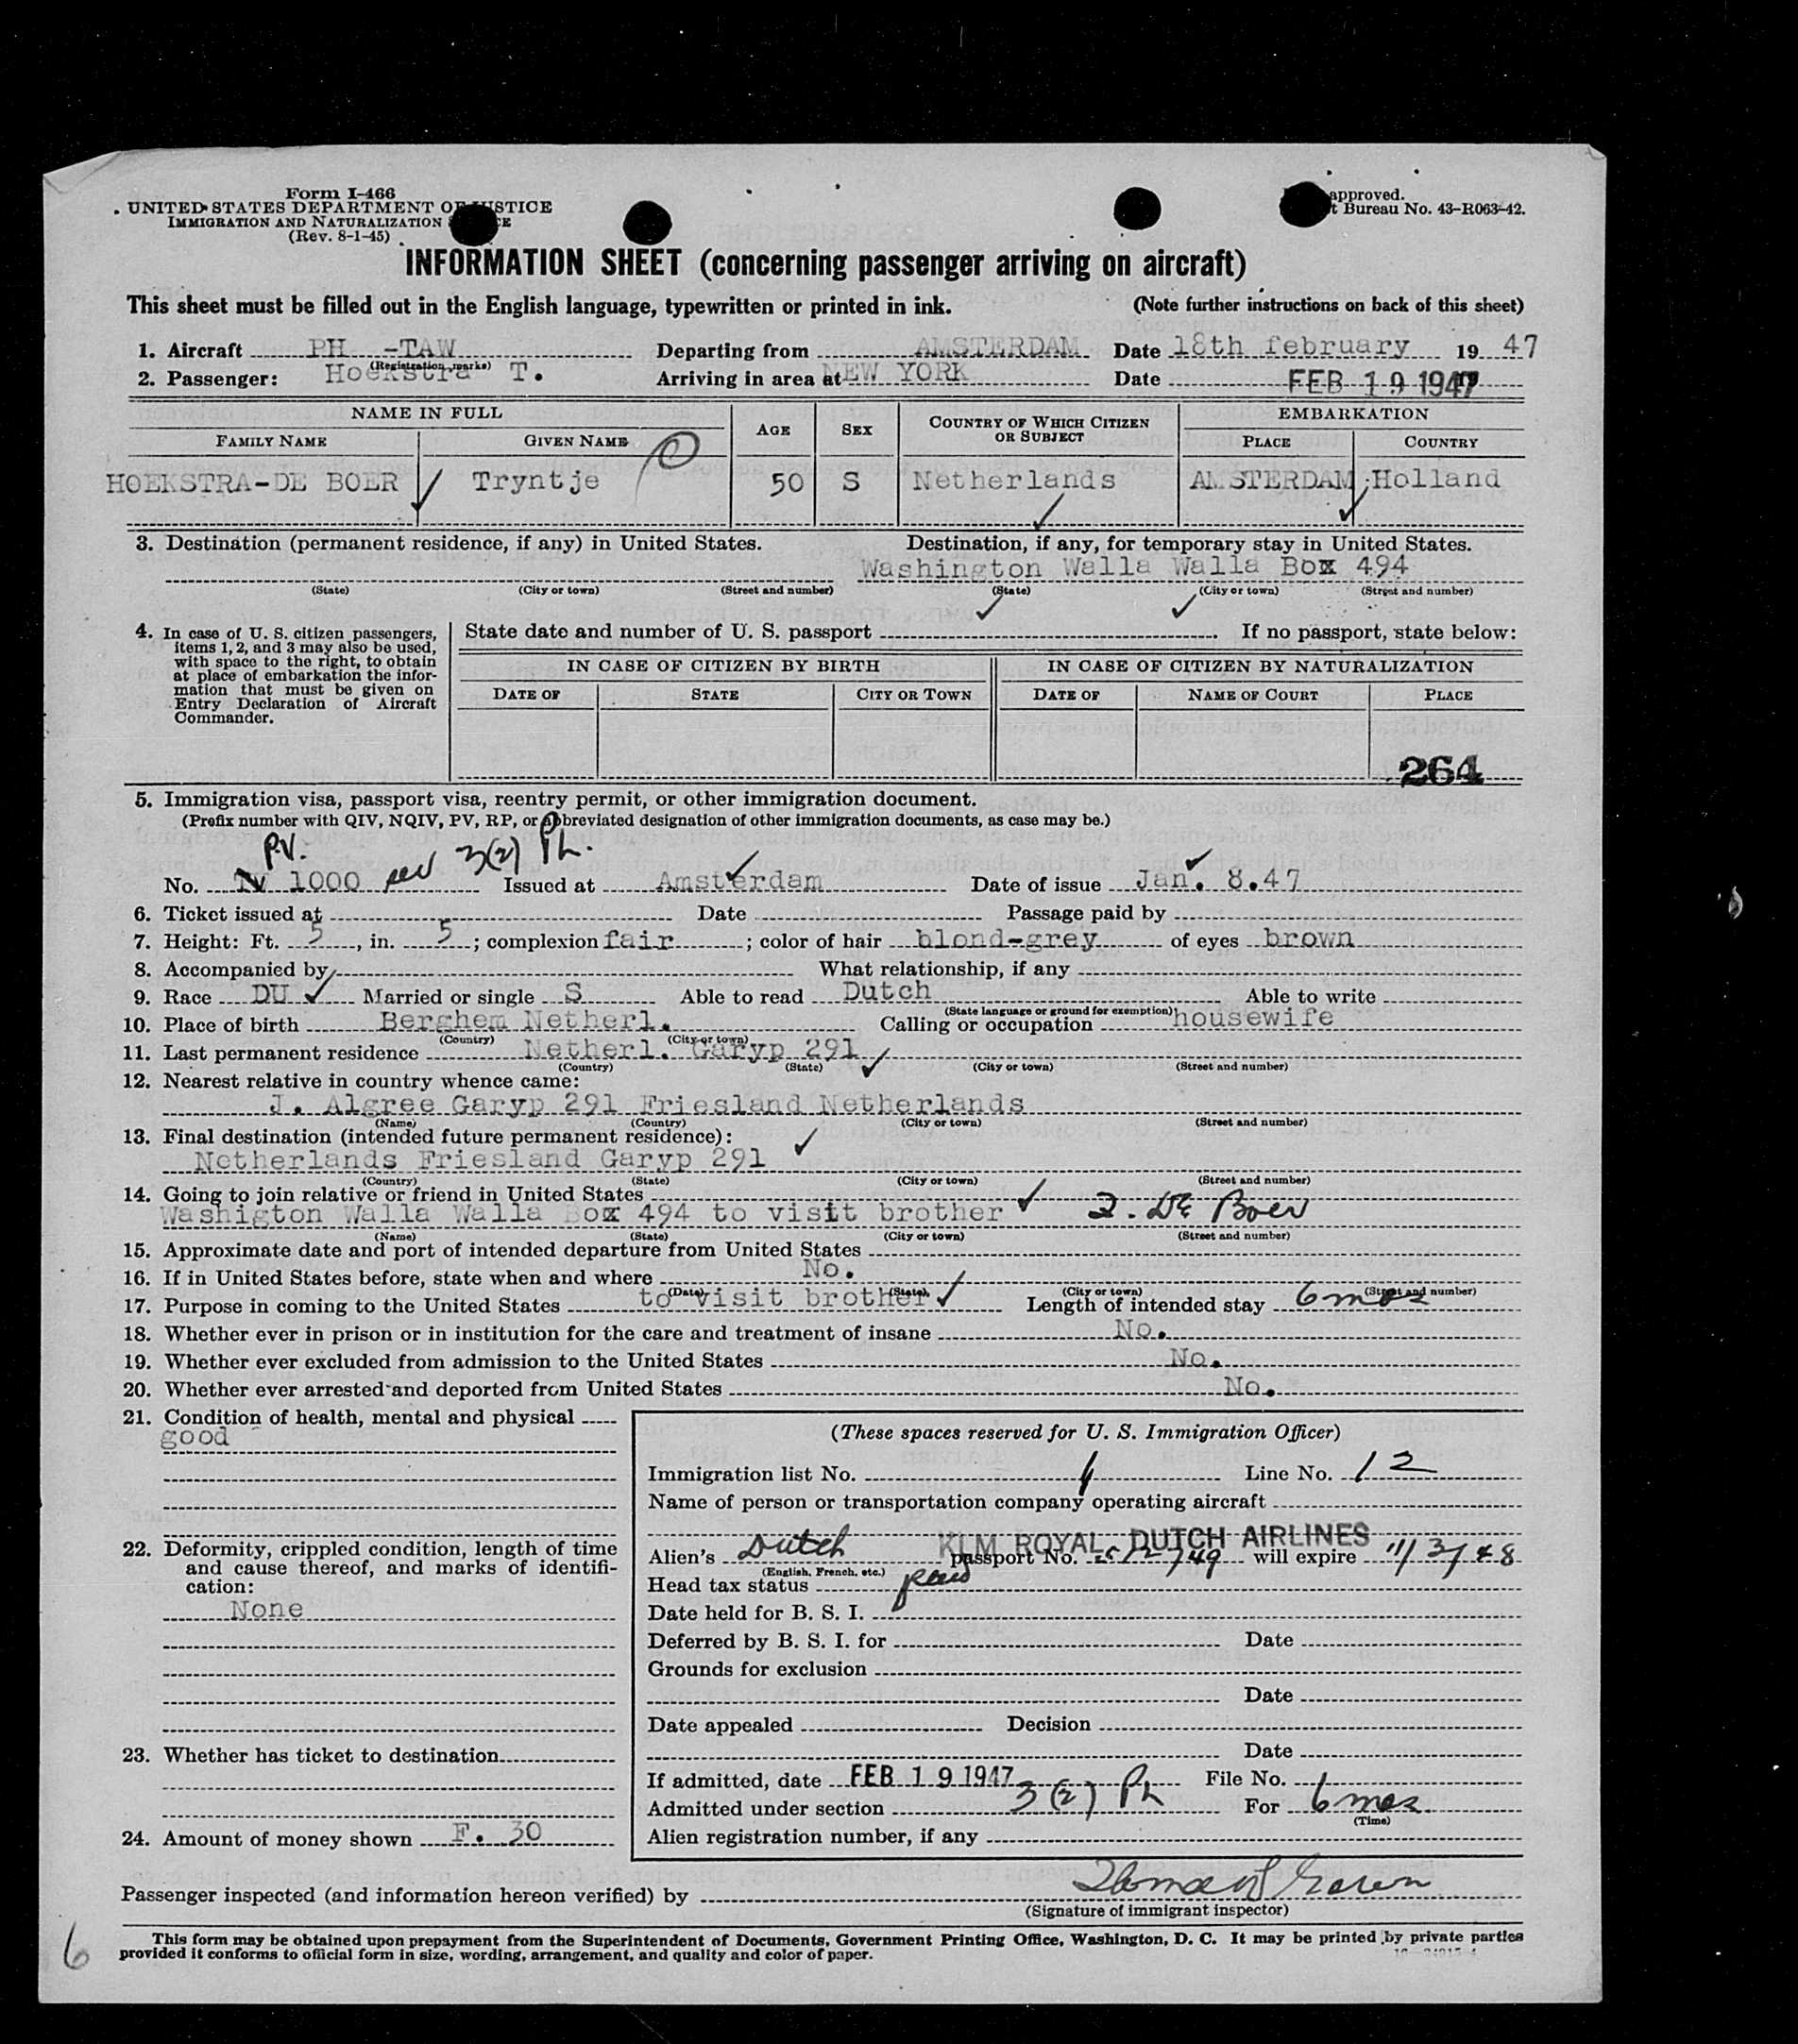 Form I-466
UNITED STATES DEPARTMENT OF JUSTICE
IMMIGRATION AND NATURALIZATION
(Rev. 8-1-45)
approved.
Bureau No. 43-R063-42.
INFORMATION SHEET (concerning passenger arriving on aircraft)
This sheet must be filled out in the English language, typewritten or printed in ink. (Note further instructions on back of this sheet)
1. Aircraft PH -TAW Departing from AMSTERDAM Date 18th february 19 47
(Registration marks)
2. Passenger: Hoekstra T. Arriving in area at NEW YORK Date FEB 19 1947
NAME IN FULL AGE SEX COUNTRY OF WHICH CITIZEN OR SUBJECT EMBARKATION
FAMILY NAME GIVEN NAME PLACE COUNTRY
HOEKSTRA-DE BOER Tryntje 50 S Netherlands AMSTERDAM Holland
3. Destination (permanent residence, if any) in United States. Destination, if any, for temporary stay in United States.
Washington Walla Walla Box 494
(State) (City or town) (Street and number) (State) (City or town) (Street and number)
4. In case of U. S. citizen passengers, items 1, 2, and 3 may also be used, with space to the right, to obtain at place of embarkation the information that must be given on Entry Declaration of Aircraft Commander.
State date and number of U. S. passport . If no passport, state below:
IN CASE OF CITIZEN BY BIRTH IN CASE OF CITIZEN BY NATURALIZATION
DATE OF STATE CITY OR TOWN DATE OF NAME OF COURT PLACE
264
5. Immigration visa, passport visa, reentry permit, or other immigration document.
(Prefix number with QIV, NQIV, PV, RP, or abbreviated designation of other immigration documents, as case may be.)
P.V. 3(2) Ph.
No. 1000 Issued at Amsterdam Date of issue Jan. 8.47
6. Ticket issued at Date Passage paid by
7. Height: Ft. 5, in. 5; complexion fair; color of hair blond-grey of eyes brown
8. Accompanied by What relationship, if any
9. Race DU Married or single S Able to read Dutch Able to write
(State language or ground for exemption)
10. Place of birth Berghem Netherl. Calling or occupation housewife
(Country) (City or town)
11. Last permanent residence Netherl. Garyp 291
(Country) (State) (City or town) (Street and number)
12. Nearest relative in country whence came:
J. Algree Garyp 291 Friesland Netherlands
(Name) (Country) (City or town) (Street and number)
13. Final destination (intended future permanent residence):
Netherlands Friesland Garyp 291
(Country) (State) (City or town) (Street and number)
14. Going to join relative or friend in United States
Washigton Walla Walla Box 494 to visit brother De Boer
(Name) (State) (City or town) (Street and number)
15. Approximate date and port of intended departure from United States
16. If in United States before, state when and where No.
(Date) (State) (City or town) (Street and number)
17. Purpose in coming to the United States to visit brother Length of intended stay 6 mos
18. Whether ever in prison or in institution for the care and treatment of insane No.
19. Whether ever excluded from admission to the United States No.
20. Whether ever arrested and deported from United States No.
21. Condition of health, mental and physical
good
22. Deformity, crippled condition, length of time and cause thereof, and marks of identification:
None
23. Whether has ticket to destination
24. Amount of money shown F. 30
(These spaces reserved for U. S. Immigration Officer)
Immigration list No. Line No. 12
Name of person or transportation company operating aircraft
KLM ROYAL DUTCH AIRLINES
Alien's Dutch passport No. will expire 11/3/48
(English, French, etc.)
Head tax status paid
Date held for B. S. I.
Deferred by B. S. I. for Date
Grounds for exclusion
Date
Date appealed Decision
Date
If admitted, date FEB 19 1947 File No.
Admitted under section 3 (2) Ph For 6 mos.
(Time)
Alien registration number, if any
Passenger inspected (and information hereon verified) by
(Signature of immigrant inspector)
This form may be obtained upon prepayment from the Superintendent of Documents, Government Printing Office, Washington, D. C. It may be printed by private parties
provided it conforms to official form in size, wording, arrangement, and quality and color of paper.
6